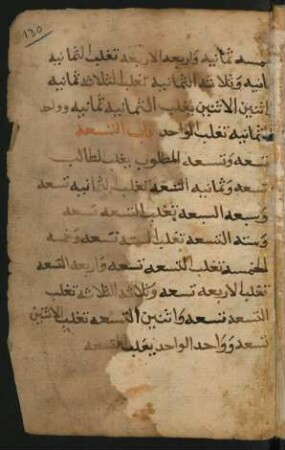 130
ثمانيه واربعه الاربعه تغلب الثمانيه
وثلاثه الثمانيه تغلب الثلاثه ثمانيه
اثنين الاثنين يغلب الثمانيه ثمانيه وواحد
ثمانيه تغلب الواحد باب التسعه
تسعه وتسعه المطلوب يغلب لطالب
تسعه وثمانيه التسعه تغلب الثمانيه تسعه
وسبعه السبعه تغلب التسعه تسعه
وسته التسعه تغلب السته تسعه وخمسه
الخمسه تغلب التسعه تسعه واربعه التسعه
تغلب الاربعه تسعه وثلاثه الثلاثه تغلب
التسعه تسعه واثنين التسعه تغلب الاثنين
تسعه وواحد الواحد يغلب التسعه